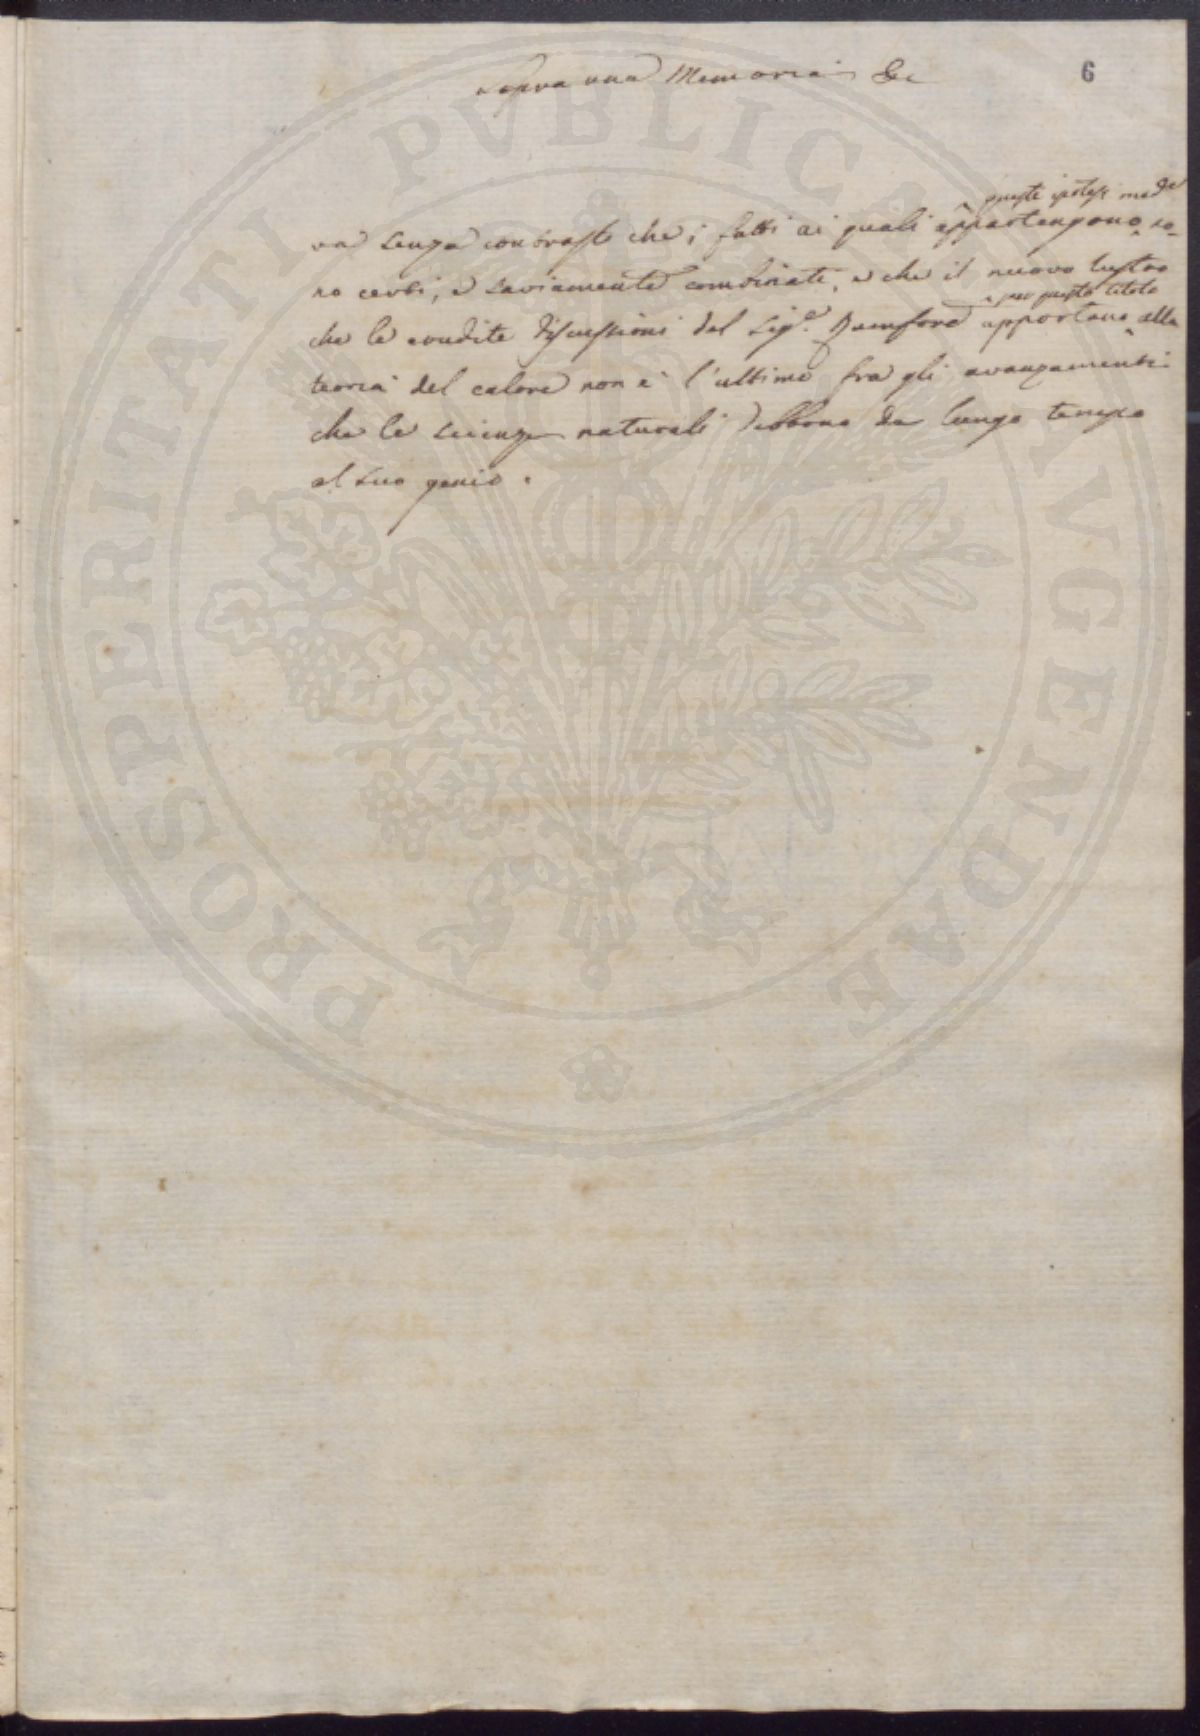 sopra una Memoria &c
6
queste ipotesi med.e
va senza contrasto che i fatti ai quali appartengono so-
no certi, e saviamente combinati, e che il nuovo lustro
e per questo titolo
che le erudite discussioni del Sig.e Rumford apportano alla
teoria del calore non è l'ultimo fra gli avanzamenti
che le scienze naturali debbono da lungo tempo
al suo genio.
PROSPERITATI PVBLICAE AVGENDAE